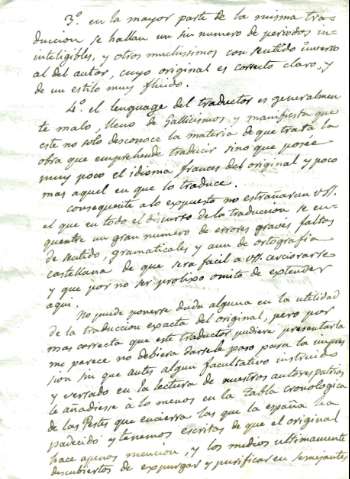 3º. en la mayor parte de la misma tra-
duccion se hallan un sin numero de periodos in-
inteligibles, y otros muchisimos con sentido inverso
al del autor, cuyo original es correcto claro, y
de un estilo muy fluido.
4º. el lenguage del traductor es generalmen
te malo, lleno de Gallicismos y manifiesta que
este no solo desconoce la materia de que trata la
obra que emprehende traducir sino que posee
muy poco el idioma frances del original y poco
mas aquel en que lo traduce.
Consequente a lo expuesto no estrañaran VSS.
el que en todo el discurso de la traducion se en-
quentre un gran numero de errores graves faltas
de sentido, gramaticales y aun de ortografia
castellana de que sera facil a VSS. cerciorarse
y que por no ser prolixo omito de extender
aqui.
No puede ponerse duda alguna en la utilidad
de la traduccion exacta del original, pero por
mas correcta que este traductor pudiera presentarla
me parece no debiera darsela paso para la impre
sion sin que antes algun facultativo instruido
y versado en la lectura de nuestros autores patrios
le anadiese à lo menos en la Tabla cronologica
de las Pestes que encierra las que la españa ha
padecido y tenemos escritas de que el original
hace apenas mencion, y los medios ultimamente
descubiertos de expurgar y purificar en semejantes